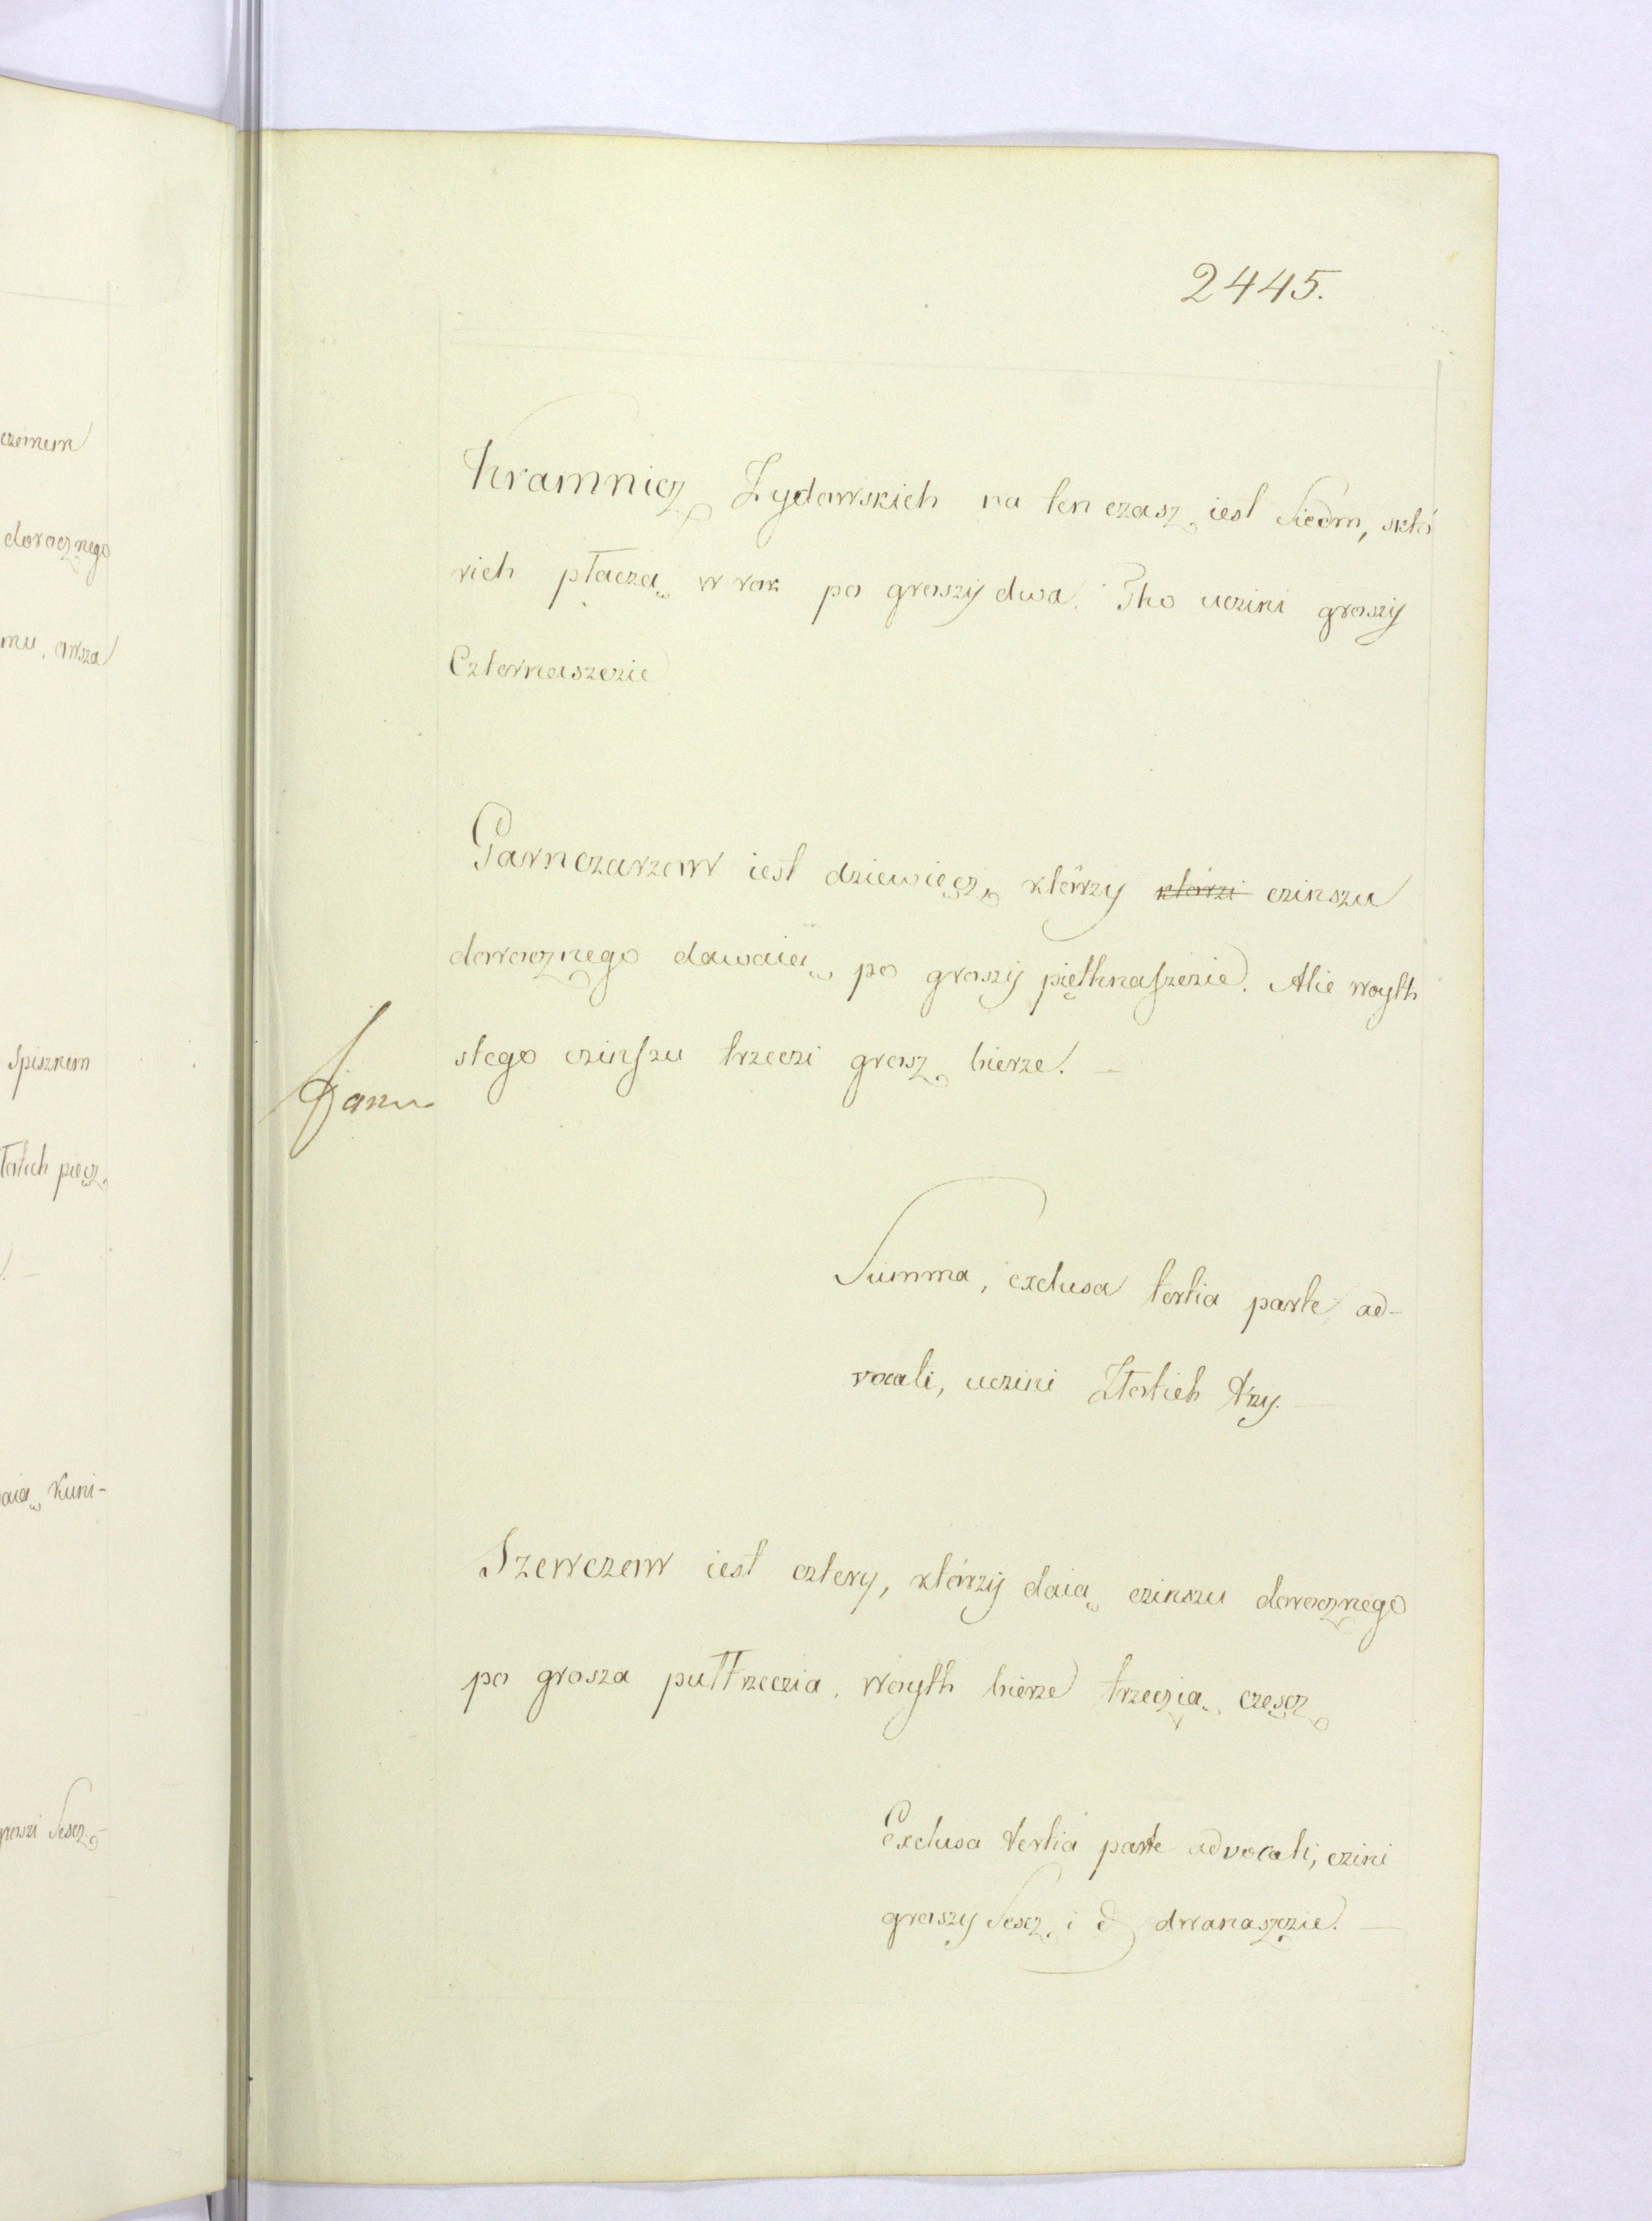 2445.
czeinem
dorocznego
mu, wsza
Spisznem
złotich pięcz
aią kuni-
groszi Sescz
Kramnicz Zydowskich na ten czasz iest Siedm, sktó
rich płaczą w rok po groszÿ dwa. Tho uczini groszÿ
Czternaszczie
Garnczarzow iest dziewięcz, którzy którzi czinszu
dorocznego dawaią po groszÿ pięthnaszczie. Alie woyth
stego czinszu trzeczi grosz bierze. —
Summa, exclusa tertia parte ad-
vocati, uczini Złotich trzy. —
Szewczow iest cztery, którzÿ daią czinszu dorocznego
po grosza pułtrzeczia. Woyth bierze trzeczią częscz
Exclusa tertia parte advocati, czini
groszy Sescz i d dwanaszczie. —